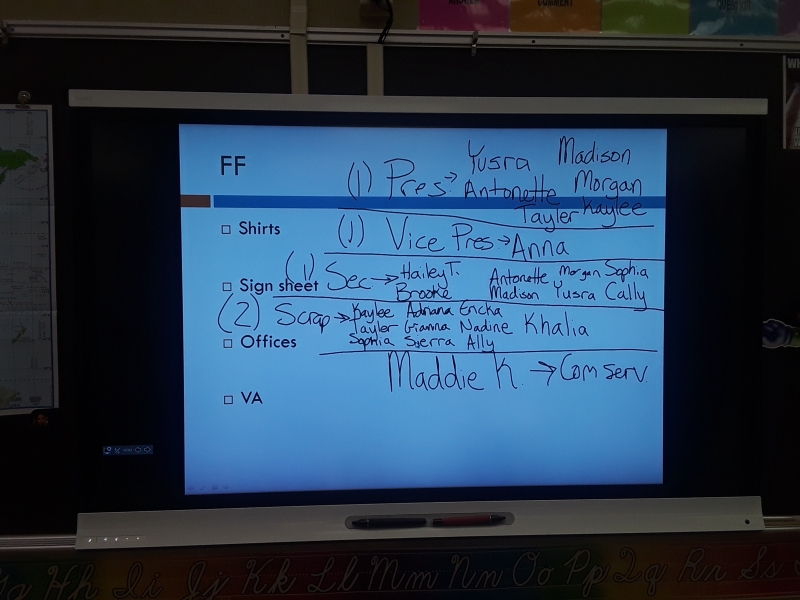 COMMENT
QUESTION
FF
(1) Pres. → Yusra Madison
Antonette Morgan
Tayler Kaylee
Shirts
(1) Vice Pres → Anna
Sign sheet
(1) Sec → Hailey T. Antonette Morgan Sophia
Brooke Madison Yusra Cally
(2) Scrap → Kaylee Adriana Ericka
Tayler Gianna Nadine Khalia
Sophia Sierra Ally
Offices
Maddie K. → Com serv.
VA
Hh Ii Jj Kk Ll Mm Nn Oo Pp Qq Rr Ss